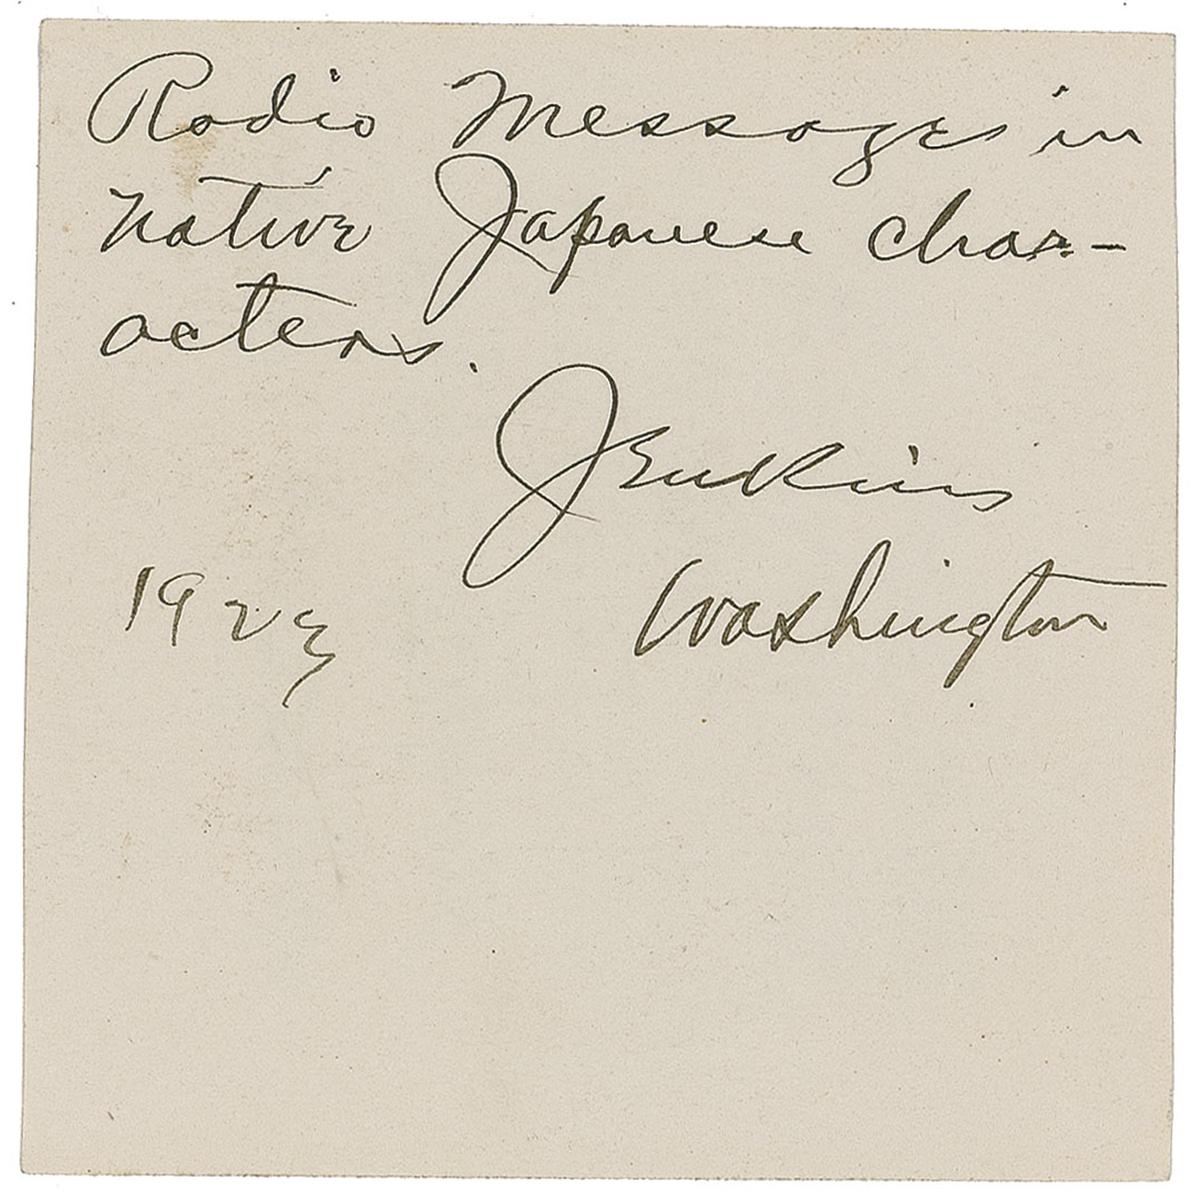 Radio Messages in
native Japanese char-
acters.
Jenkins
1923 Washington